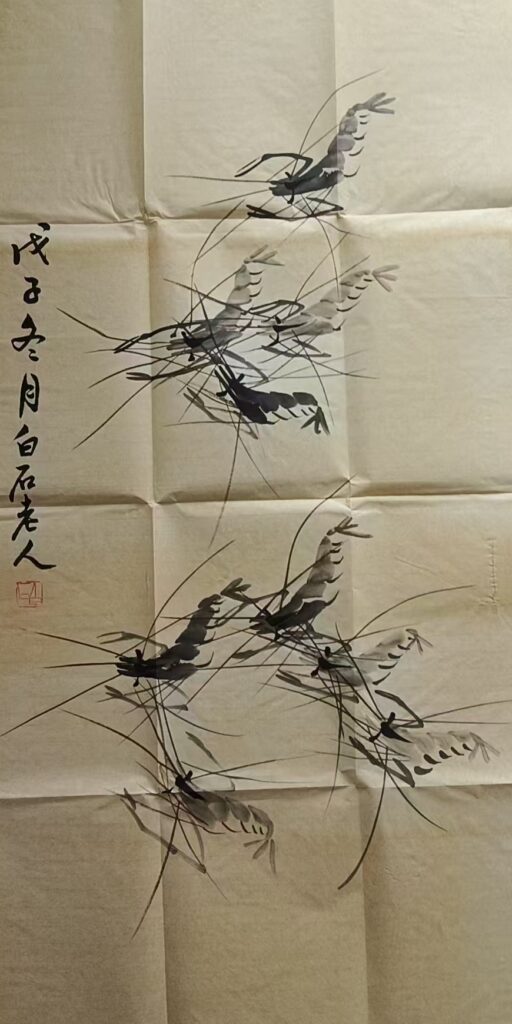 戊子冬月白石老人